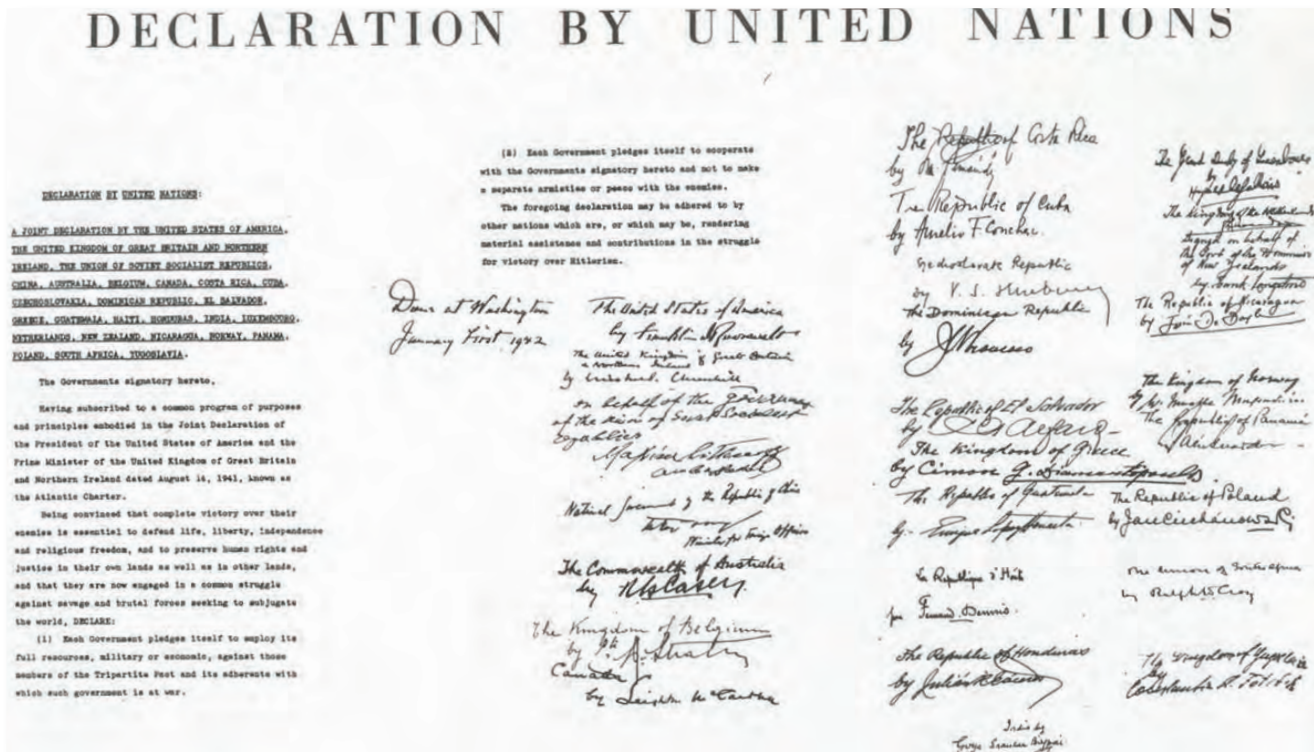 DECLARATION BY UNITED NATIONS
DECLARATION BY UNITED NATIONS:
A JOINT DECLARATION BY THE UNITED STATES OF AMERICA,
THE UNITED KINGDOM OF GREAT BRITAIN AND NORTHERN
IRELAND, THE UNION OF SOVIET SOCIALIST REPUBLICS,
CHINA, AUSTRALIA, BELGIUM, CANADA, COSTA RICA, CUBA,
CZECHOSLOVAKIA, DOMINICAN REPUBLIC, EL SALVADOR,
GREECE, GUATEMALA, HAITI, HONDURAS, INDIA, LUXEMBOURG,
NETHERLANDS, NEW ZEALAND, NICARAGUA, NORWAY, PANAMA,
POLAND, SOUTH AFRICA, YUGOSLAVIA.
The Governments signatory hereto,
Having subscribed to a common program of purposes
and principles embodied in the Joint Declaration of
the President of the United States of America and the
Prime Minister of the United Kingdom of Great Britain
and Northern Ireland dated August 14, 1941, known as
the Atlantic Charter.
Being convinced that complete victory over their
enemies is essential to defend life, liberty, independence
and religious freedom, and to preserve human rights and
justice in their own lands as well as in other lands,
and that they are now engaged in a common struggle
against savage and brutal forces seeking to subjugate
the world, DECLARE:
(1) Each Government pledges itself to employ its
full resources, military or economic, against those
members of the Tripartite Pact and its adherents with
which such government is at war.
(2) Each Government pledges itself to cooperate
with the Governments signatory hereto and not to make
a separate armistice or peace with the enemies.
The foregoing declaration may be adhered to by
other nations which are, or which may be, rendering
material assistance and contributions in the struggle
for victory over Hitlerism.
Done at Washington
January First, 1942
The United States of America
by Franklin D Roosevelt
The United Kingdom of Great Britain
& Northern Ireland
by Winston Churchill
on behalf of the Government
of the Union of Soviet Socialist
Republics
Maxim Litvinoff
Ambassador
National Government of the Republic of China
Minister for Foreign Affairs
The Commonwealth of Australia
by R G Casey
The Kingdom of Belgium
by
Canada
by Leighton McCarthy
The Republic of Costa Rica
by
The Republic of Cuba
by Aurelio F. Concheso
Republic
by V. S. Hurban
the Dominican Republic
by
The Republic of El Salvador
by C A Alfaro
The Kingdom of Greece
by Cimon G. Diamantopoulos
The Republic of Guatemala
by Enrique
La Republique d'Haiti
par Fernand Dennis
The Republic of Honduras
by Julián R Caceres
India by
Girja Shankar Bajpai
The Grand Duchy of Luxembourg
by
The Kingdom of the Netherlands
Signed on behalf of
the Govt of the Dominion
of New Zealand
by Frank Langstone
The Republic of Nicaragua
by
The Kingdom of Norway
by
The Republic of Panama
by
The Republic of Poland
by Jan Ciechanowski
The Union of South Africa
by Ralph W Close
The Kingdom of Yugoslavia
by
Constantin A. Fotitch